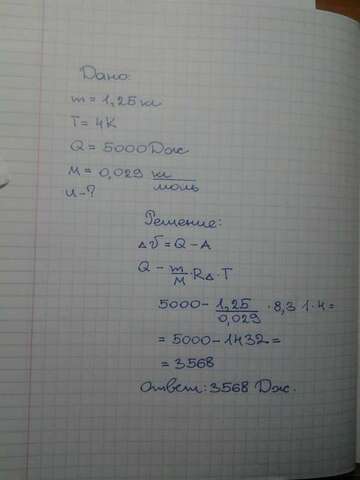 Дано:
m = 1,25 кг
T = 4K
Q = 5000 Дж
M = 0,029 кг/моль
u - ?
Решение:
ΔU = Q - A
Q - m/M · RΔ · T
5000 - 1,25/0,029 · 8,31 · 4 =
= 5000 - 1432 =
= 3568
Ответ: 3568 Дж.